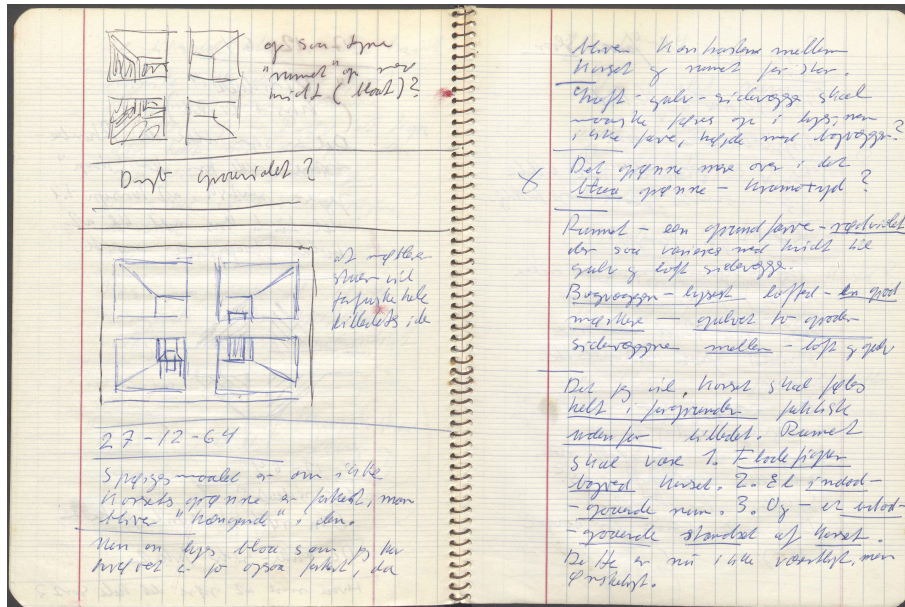 og saa tone
"rummet" op med
hvidt (blaat)?
Dybt graaviolet?
at
stuer vil
hele
billedets ide
27-12-64
Spørgsmaalet er om ikke
korsets grønne er forkert, man
bliver "hængende" i den.
Men en lyses blaa som jeg har
er jo ogsaa forkert, da
bliver kontrasterne mellem
korset og rummet for stor.
Loft - gulv - sidevægge skal
maaske føres op i lys, men
i ikke farve, højde med bagvæggen?
Det grønne mere over i det
blaa grønne - kromoxyd?
Rummet - een grundfarve - rødviolet
der saa varieres med hvidt til
gulv og loft sidevægge.
Bagvæggen - lysest loftet - en grad
mørkere - gulvet to grader
sidevæggene mellem - loft og gulv
Det jeg vil, korset skal føles
helt i forgrunden faktisk
udenfor billedet. Rummet
skal være 1. Flade
bagved korset. 2. Et indad-
-gaaende rum. 3. Og - et udad-
-gaaende af korset.
Dette er nu ikke væsentligt, men
ønskeligt.